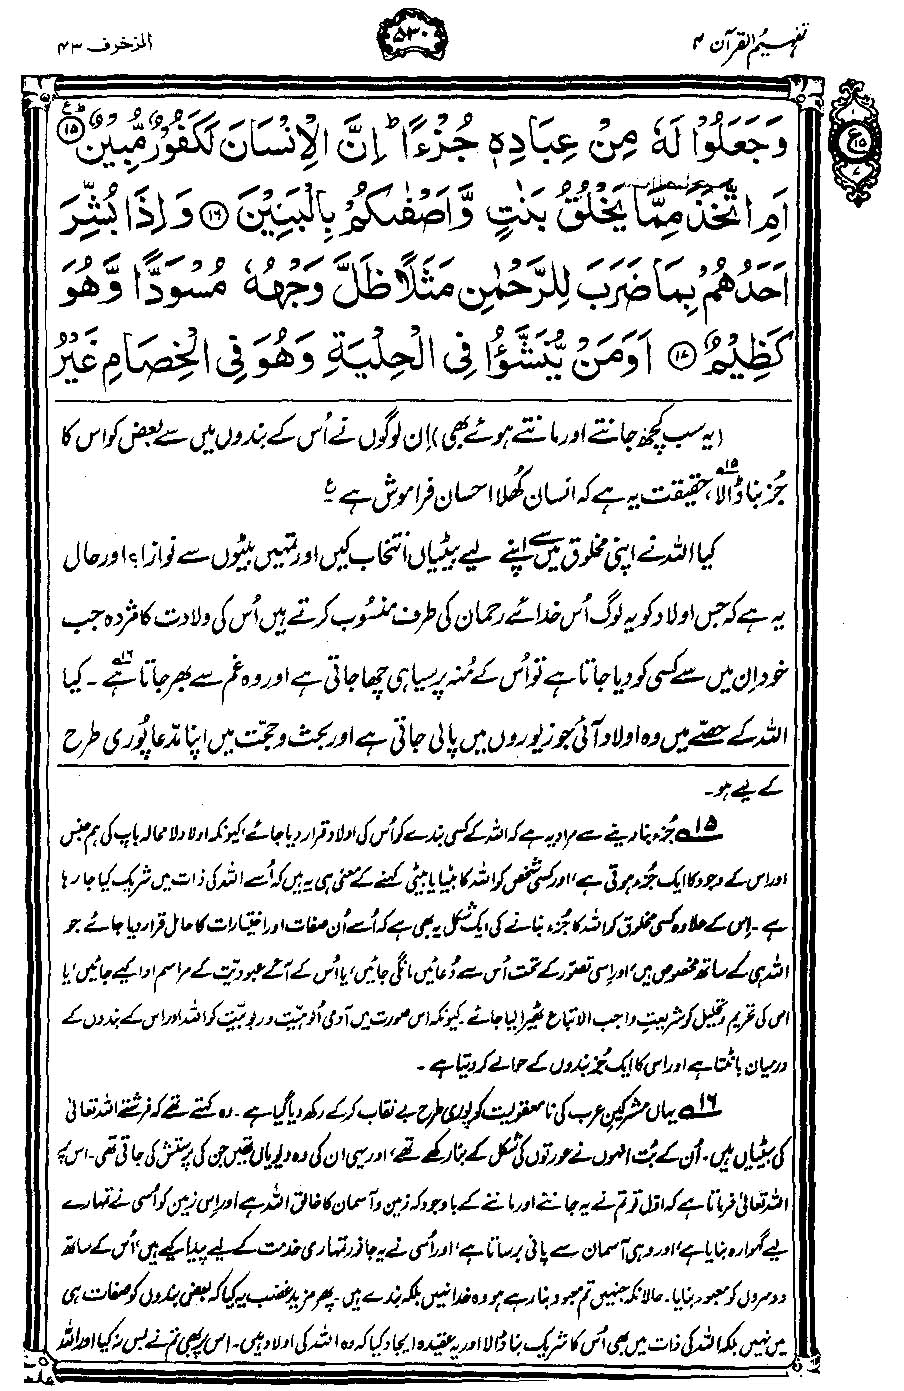 تفہیم القرآن ۴
۵۳۰
الزخرف ۴۳
وَجَعَلُوْا لَهٗ مِنْ عِبَادِهٖ جُزْءًا ؕ اِنَّ الْاِنْسَانَ لَكَفُوْرٌ مُّبِيْنٌ ؕ۱۵
اَمِ اتَّخَذَ مِمَّا يَخْلُقُ بَنٰتٍ وَّاَصْفٰىكُمْ بِالْبَنِيْنَ ۱۶ وَاِذَا بُشِّرَ
اَحَدُهُمْ بِمَا ضَرَبَ لِلرَّحْمٰنِ مَثَلًا ظَلَّ وَجْهُهٗ مُسْوَدًّا وَّهُوَ
كَظِيْمٌ ۱۷ اَوَمَنْ يُّنَشَّؤُا فِى الْحِلْيَةِ وَهُوَ فِى الْخِصَامِ غَيْرُ
(یہ سب کچھ جانتے اور مانتے ہوئے بھی) اِن لوگوں نے اُس کے بندوں میں سے بعض کو اس کا
جُز بنا ڈالا،۱۵ حقیقت یہ ہے کہ انسان کُھلا احسان فراموش ہے ع
کیا اللہ نے اپنی مخلوق میں سے اپنے لیے بیٹیاں انتخاب کیں اور تمہیں بیٹوں سے نوازا؟ اور حال
یہ ہے کہ جس اولاد کو یہ لوگ اُس خدائے رحمان کی طرف منسُوب کرتے ہیں اُس کی ولادت کا مژدہ جب
خود اِن میں سے کسی کو دیا جاتا ہے تو اُس کے مُنہ پر سیاہی چھا جاتی ہے اور وہ غم سے بھر جاتا ہے۱۶۔ کیا
اللہ کے حصّے میں وہ اولاد آئی جو زیوروں میں پالی جاتی ہے اور بحث و حجّت میں اپنا مدّعا پُوری طرح
کے لیے ہو۔
۱۵ جُزء بنا دینے سے مراد یہ ہے کہ اللہ کے کسی بندے کو اُس کی اولاد قرار دیا جائے، کیونکہ اولاد لامحالہ باپ کی ہم جنس
اور اس کے وجود کا ایک جُزء ہوتی ہے، اور کسی شخص کو اللہ کا بیٹا یا بیٹی کہنے کے معنی ہی یہ ہیں کہ اُسے اللہ کی ذات میں شریک کیا جا رہا
ہے۔ اِس کے علاوہ کسی مخلوق کو اللہ کا جُزء بنانے کی ایک شکل یہ بھی ہے کہ اُسے اُن صفات اور اختیارات کا حامل قرار دیا جائے جو
اللہ ہی کے ساتھ مخصوص ہیں، اور اِسی تصوّر کے تحت اُس سے دُعائیں مانگی جائیں، یا اُس کے آگے عبودیّت کے مراسم ادا کیے جائیں، یا
اس کی تحریم و تحلیل کو شریعتِ واجب الاتباع ٹھیرا لیا جائے۔ کیونکہ اس صورت میں آدمی اُلوہیّت و ربوبیّت کو اللہ اور اس کے بندوں کے
درمیان بانٹتا ہے اور اس کا ایک جُز بندوں کے حوالے کر دیتا ہے۔
۱۶ یہاں مشرکینِ عرب کی نامعقولیت کو پوری طرح بے نقاب کر کے رکھ دیا گیا ہے۔ وہ کہتے تھے کہ فرشتے اللہ تعالیٰ
کی بیٹیاں ہیں۔ اُن کے بُت انہوں نے عورتوں کی شکل کے بنا رکھے تھے، اور یہی ان کی وہ دیویاں تھیں جن کی پرستش کی جاتی تھی۔ اس پر
اللہ تعالیٰ فرماتا ہے کہ اوّل تو تم نے یہ جاننے اور ماننے کے باوجود کہ زمین و آسمان کا خالق اللہ ہے اور اِس زمین کو اُسی نے تمہارے
لیے گہوارہ بنایا ہے، اور وہی آسمان سے پانی برساتا ہے، اور اُسی نے یہ جانور تمہاری خدمت کے لیے پیدا کیے ہیں، اُس کے ساتھ
دوسروں کو معبود بنایا۔ حالانکہ جنہیں تم معبود بنا رہے ہو وہ خدا نہیں بلکہ بندے ہیں۔ پھر مزید غضب یہ کیا کہ بعض بندوں کو صفات ہی
میں نہیں بلکہ اللہ کی ذات میں بھی اُس کا شریک بنا ڈالا اور یہ عقیدہ ایجاد کیا کہ وہ اللہ کی اولاد ہیں۔ اس پر بھی تم نے بس نہ کیا اور اللہ